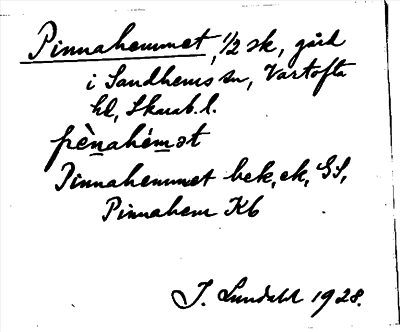 Pinnahemmet, 1/2 sk, gård
i Sandhems sn, Vartofta
hd, Skarab. l.
pènahémət
Pinnahemmet bek, ek, GS,
Pinnahem Kb
I. Lundahl 1928.